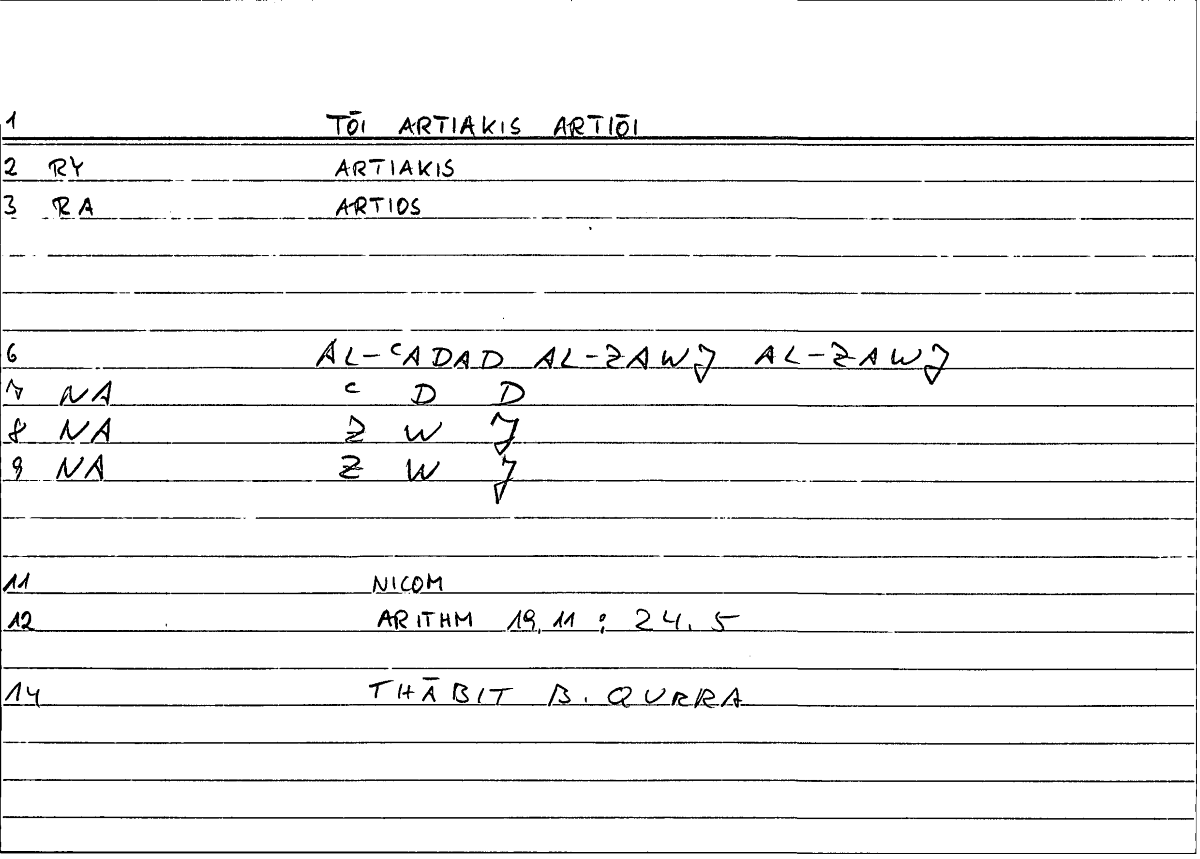 1 TŌI ARTIAKIS ARTIŌI
2 RY ARTIAKIS
3 RA ARTIOS
6 AL-ʿADAD AL-ZAWJ AL-ZAWJ
7 NA ʿ D D
8 NA Z W J
9 NA Z W J
11 NICOM
12 ARITHM 19,11 : 24.5
14 THĀBIT B. QURRA